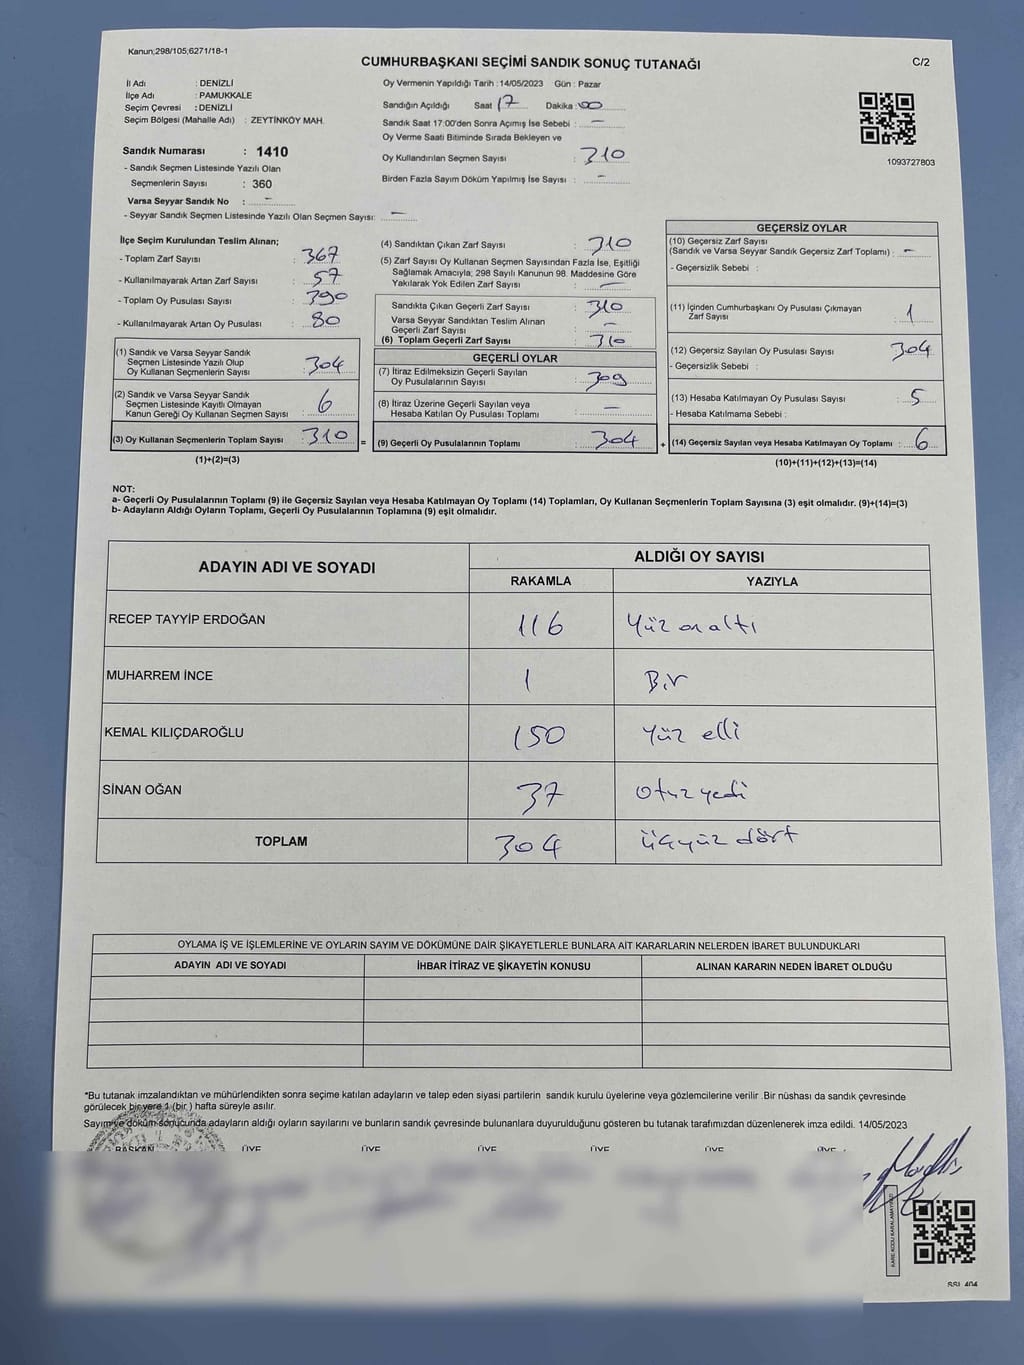 Kanun;298/105;6271/18-1
CUMHURBAŞKANI SEÇİMİ SANDIK SONUÇ TUTANAĞI
C/2
İl Adı : DENİZLİ
İlçe Adı : PAMUKKALE
Seçim Çevresi : DENİZLİ
Seçim Bölgesi (Mahalle Adı) : ZEYTİNKÖY MAH.
Sandık Numarası : 1410
- Sandık Seçmen Listesinde Yazılı Olan
Seçmenlerin Sayısı : 360
Varsa Seyyar Sandık No : –
- Seyyar Sandık Seçmen Listesinde Yazılı Olan Seçmen Sayısı: –
Oy Vermenin Yapıldığı Tarih :14/05/2023 Gün : Pazar
Sandığın Açıldığı Saat 17 Dakika : 00
Sandık Saat 17:00'den Sonra Açımış İse Sebebi : –
Oy Verme Saati Bitiminde Sırada Bekleyen ve
Oy Kullandırılan Seçmen Sayısı : 310
Birden Fazla Sayım Döküm Yapılmış İse Sayısı : –
1093727803
İlçe Seçim Kurulundan Teslim Alınan;
- Toplam Zarf Sayısı : 367
- Kullanılmayarak Artan Zarf Sayısı : 57
- Toplam Oy Pusulası Sayısı : 390
- Kullanılmayarak Artan Oy Pusulası : 80
(1) Sandık ve Varsa Seyyar Sandık
Seçmen Listesinde Yazılı Olup
Oy Kullanan Seçmenlerin Sayısı : 304
(2) Sandık ve Varsa Seyyar Sandık
Seçmen Listesinde Kayıtlı Olmayan
Kanun Gereği Oy Kullanan Seçmen Sayısı : 6
(3) Oy Kullanan Seçmenlerin Toplam Sayısı : 310 =
(1)+(2)=(3)
(4) Sandıktan Çıkan Zarf Sayısı : 310
(5) Zarf Sayısı Oy Kullanan Seçmen Sayısından Fazla İse, Eşitliği
Sağlamak Amacıyla; 298 Sayılı Kanunun 98. Maddesine Göre
Yakılarak Yok Edilen Zarf Sayısı : –
Sandıkta Çıkan Geçerli Zarf Sayısı : 310
Varsa Seyyar Sandıktan Teslim Alınan
Geçerli Zarf Sayısı : –
(6) Toplam Geçerli Zarf Sayısı : 310
GEÇERLİ OYLAR
(7) İtiraz Edilmeksizin Geçerli Sayılan
Oy Pusulalarının Sayısı : 309
(8) İtiraz Üzerine Geçerli Sayılan veya
Hesaba Katılan Oy Pusulası Toplamı : –
(9) Geçerli Oy Pusulalarının Toplamı : 304 +
GEÇERSİZ OYLAR
(10) Geçersiz Zarf Sayısı
(Sandık ve Varsa Seyyar Sandık Geçersiz Zarf Toplamı) : –
- Geçersizlik Sebebi :
(11) İçinden Cumhurbaşkanı Oy Pusulası Çıkmayan
Zarf Sayısı : 1
(12) Geçersiz Sayılan Oy Pusulası Sayısı : 304
- Geçersizlik Sebebi :
(13) Hesaba Katılmayan Oy Pusulası Sayısı : 5
- Hesaba Katılmama Sebebi :
(14) Geçersiz Sayılan veya Hesaba Katılmayan Oy Toplamı : 6
(10)+(11)+(12)+(13)=(14)
NOT:
a- Geçerli Oy Pusulalarının Toplamı (9) ile Geçersiz Sayılan veya Hesaba Katılmayan Oy Toplamı (14) Toplamları, Oy Kullanan Seçmenlerin Toplam Sayısına (3) eşit olmalıdır. (9)+(14)=(3)
b- Adayların Aldığı Oyların Toplamı, Geçerli Oy Pusulalarının Toplamına (9) eşit olmalıdır.
ADAYIN ADI VE SOYADI ALDIĞI OY SAYISI
RAKAMLA YAZIYLA
RECEP TAYYİP ERDOĞAN 116 Yüz on altı
MUHARREM İNCE 1 Bir
KEMAL KILIÇDAROĞLU 150 Yüz elli
SİNAN OĞAN 37 otuz yedi
TOPLAM 304 üçyüz dört
OYLAMA İŞ VE İŞLEMLERİNE VE OYLARIN SAYIM VE DÖKÜMÜNE DAİR ŞİKAYETLERLE BUNLARA AİT KARARLARIN NELERDEN İBARET BULUNDUKLARI
ADAYIN ADI VE SOYADI İHBAR İTİRAZ VE ŞİKAYETİN KONUSU ALINAN KARARIN NEDEN İBARET OLDUĞU
*Bu tutanak imzalandıktan ve mühürlendikten sonra seçime katılan adayların ve talep eden siyasi partilerin sandık kurulu üyelerine veya gözlemcilerine verilir .Bir nüshası da sandık çevresinde
görülecek bir yere 1 (bir ) hafta süreyle asılır.
Sayım ve döküm sonucunda adayların aldığı oyların sayılarını ve bunların sandık çevresinde bulunanlara duyurulduğunu gösteren bu tutanak tarafımızdan düzenlenerek imza edildi. 14/05/2023
BAŞKAN ÜYE ÜYE ÜYE ÜYE ÜYE ÜYE
KARE KODU KARALAMAYINIZ